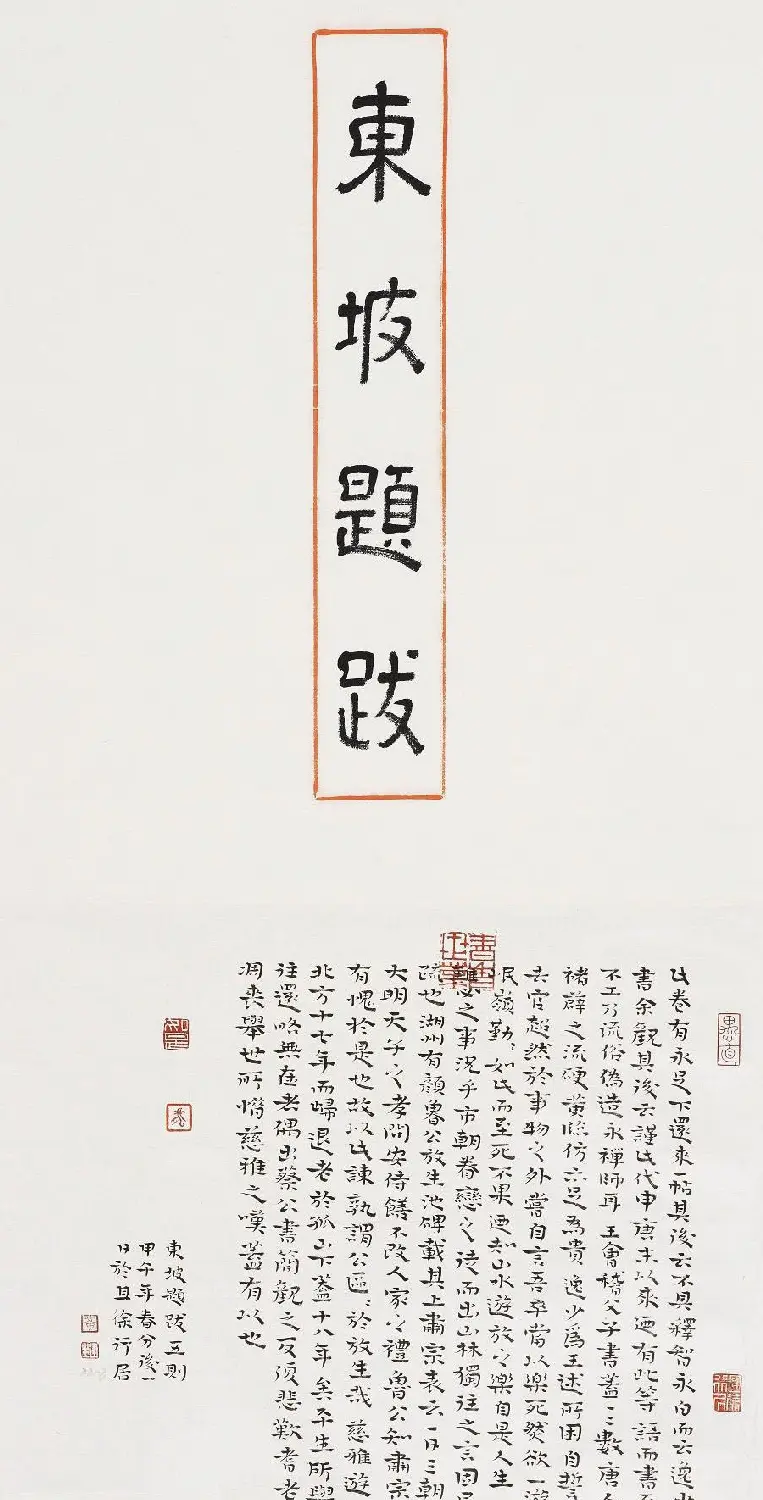 東坡題跋
此卷有永足下還來一帖其後云不具釋智永白而云逸少
書余觀其後云謹此代申唐末以來迺有此等語而書至
不工乃流俗偽造永禪師耳王會稽父子書蓋〻數唐人
褚薛之流硬黃臨仿亦足為貴逸少為王述所困自誓
去官超然於事物之外嘗自言吾卒當以樂死然欲一遊
岷嶺勤〻如此而至死不果迺知山水遊放之樂自是人生
難必之事況乎市朝眷戀之徒而出山林獨往之言固已
疏也湖州有顏魯公放生池碑載其上肅宗表云一日三朝
大明天子之孝問安侍饍不改人家之禮魯公知肅宗
有愧於是也故以此諫孰謂公區〻於放生哉慈雅遊
北方十七年而歸退老於孤山下蓋十八年矣平生所與
往還略無在者偶出蔡公書簡觀之反復悲歎耆老
凋喪舉世所惜慈雅之嘆蓋有以也
東坡題跋五則
甲午年春分後一
日於且徐行居